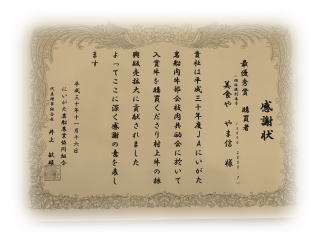 感謝状
最優秀賞 購買者
美食や やま信 様
貴社は平成三十年度JAにいがた
岩船肉牛部会枝肉共励会に於いて
入賞牛を購買くださり村上牛の振
興販売拡大に貢献されました
よってここに深く感謝の意を表し
ます
平成三十年十一月十六日
にいがた岩船農業協同組合
代表理事組合長 井上